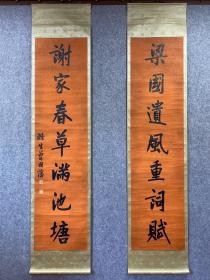 梁國遺風重詞賦
謝家春草滿池塘